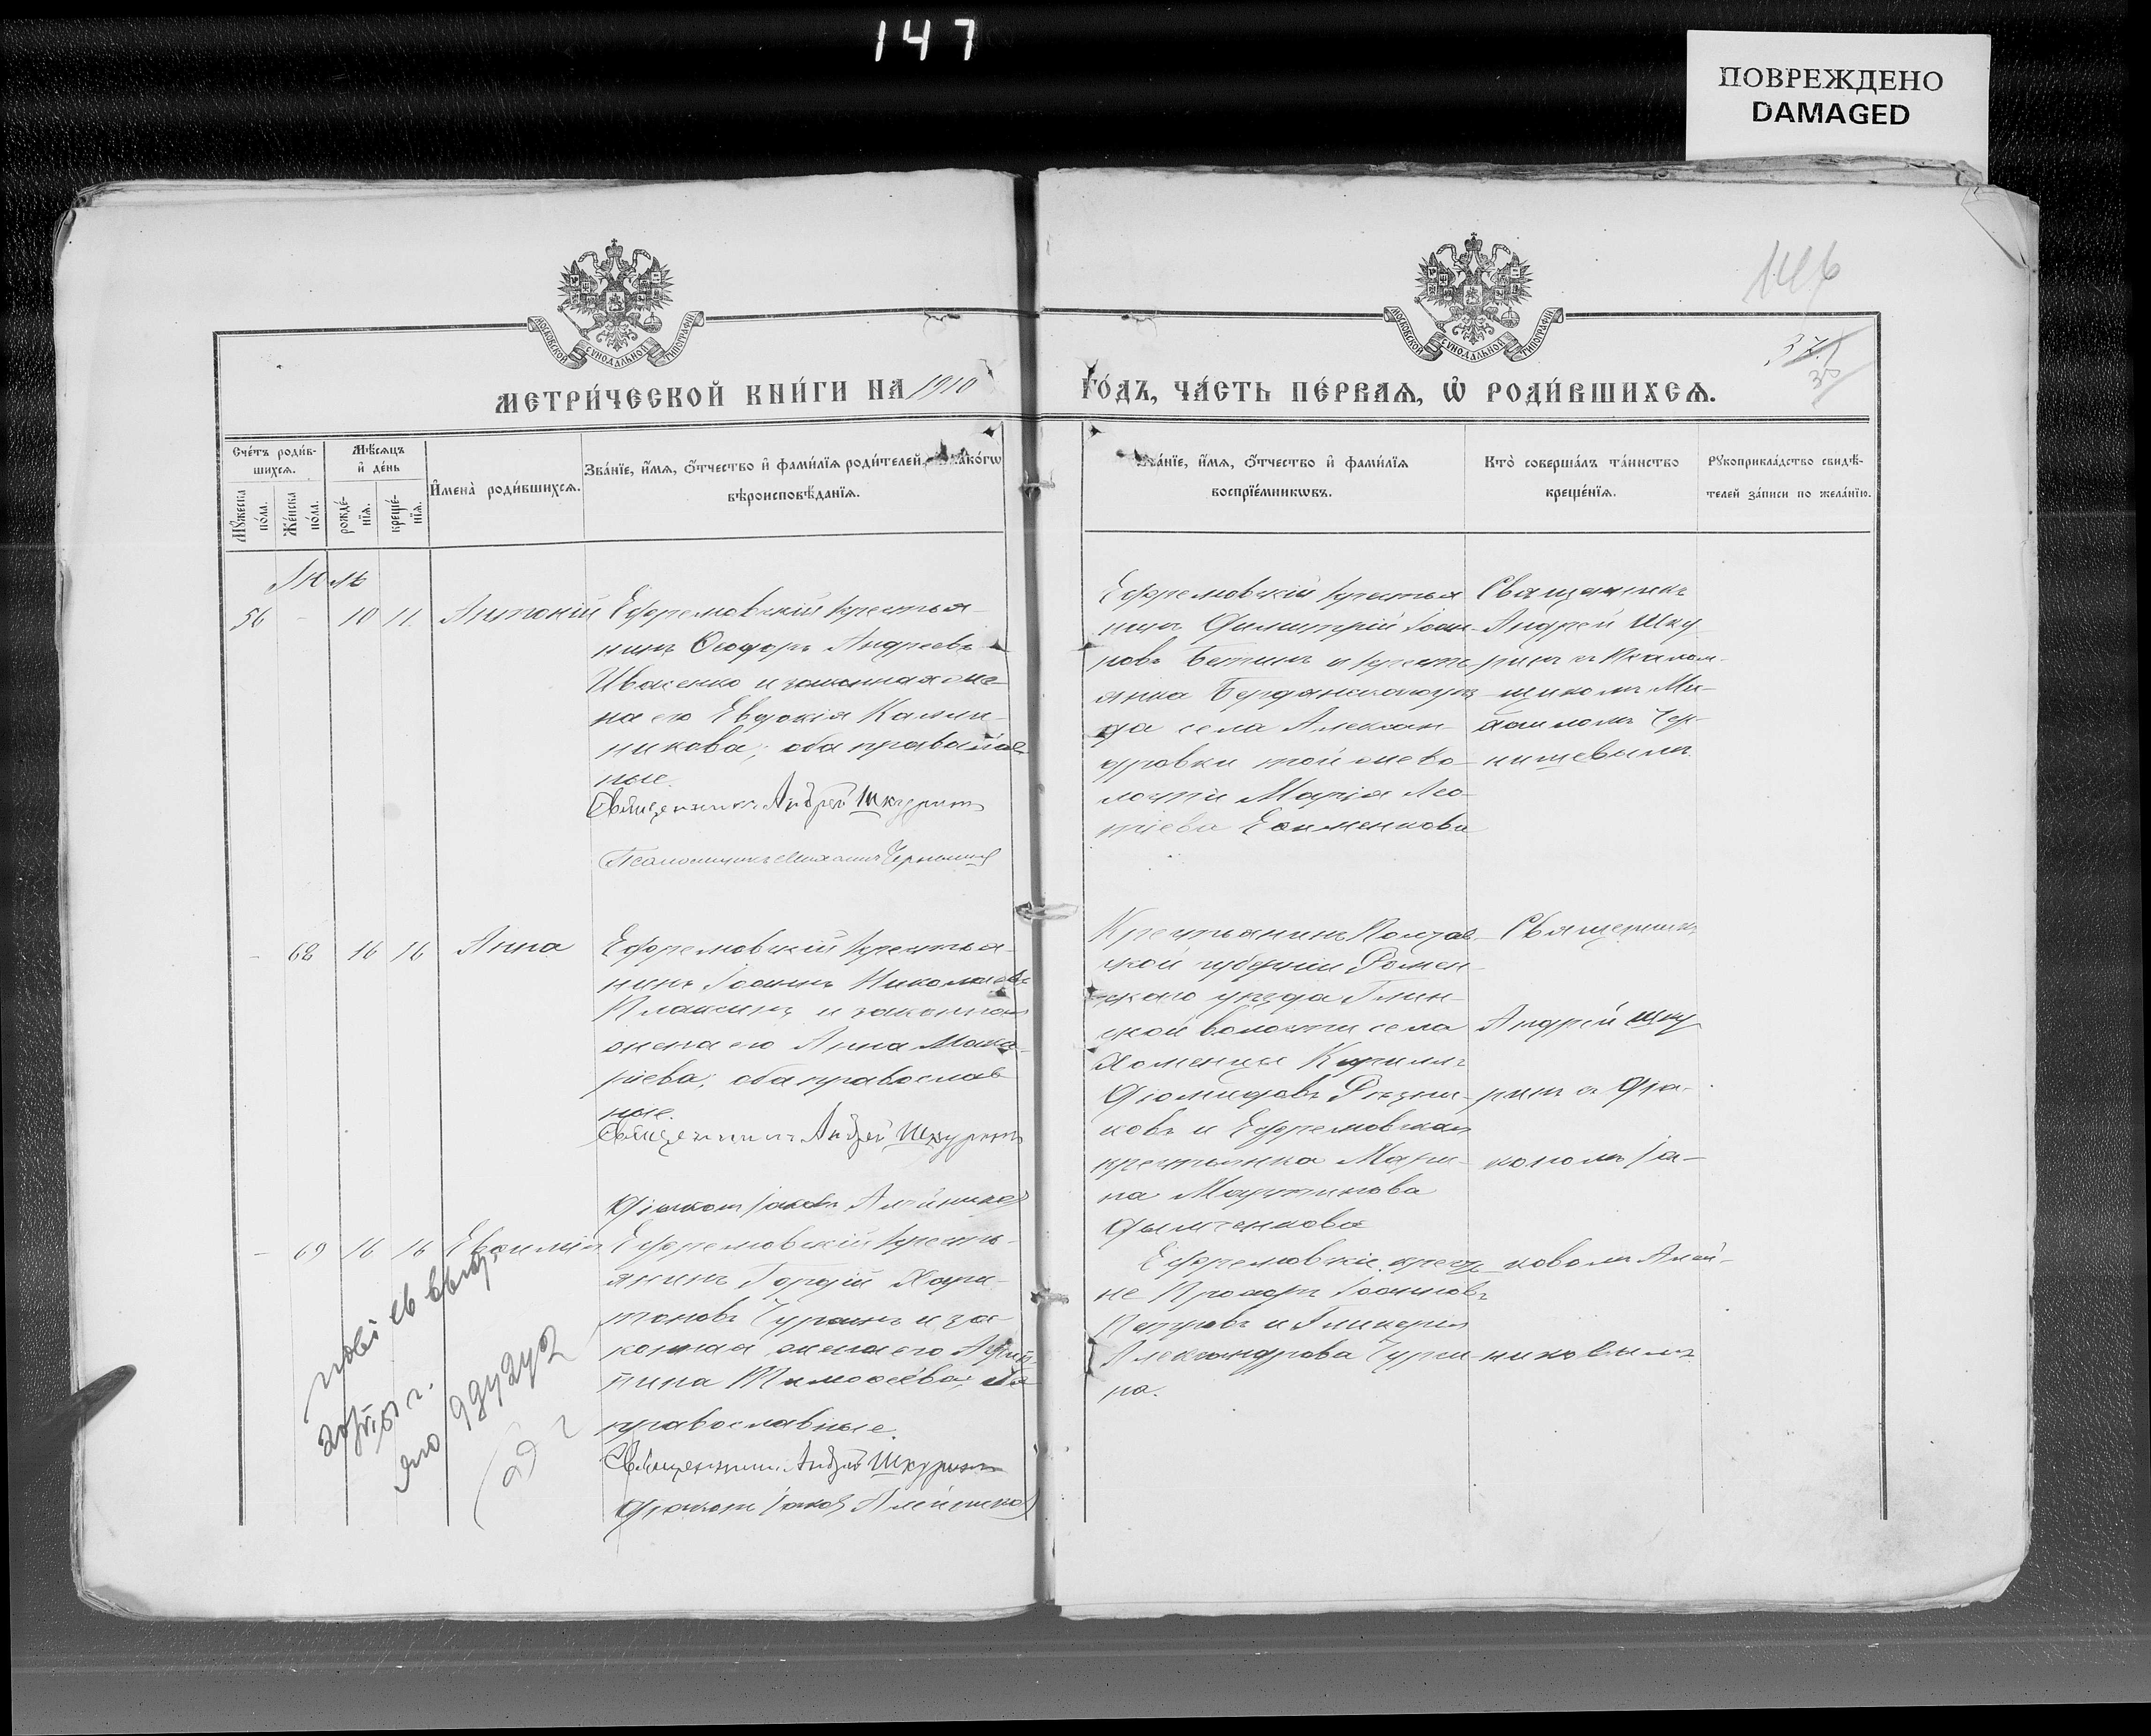 147
ПОВРЕЖДЕНО
DAMAGED
146
МОСКОВСКОЙ СУНОДАЛЬНОЙ ТИПОГРАФІИ
МОСКОВСКОЙ СУНОДАЛЬНОЙ ТИПОГРАФІИ
МЕТРИ́ЧЕСКОЙ КНИ́ГИ НА 1910
ГО́ДЪ, ЧА́СТЬ ПЕ́РВАѦ, Ѡ҆ РОДИ́ВШИХСѦ.
Сче́тъ роди́в-
шихсѧ.
Мꙋ́жеска
по́ла.
Же́нска
по́ла.
Мѣ́сѧцъ
и҆ де́нь
рожде́-
нїѧ.
креще́-
нїѧ.
И҆мена̀ роди́вшихсѧ.
Зва́нїе, и҆́мѧ, ѻ҆́тчество и҆ фами́лїѧ роди́телей,
вѣроисповѣ́данїѧ.
Зва́нїе, и҆́мѧ, ѻ҆́тчество и҆ фами́лїѧ
воспрїе́мникѡвъ.
Кто̀ соверша́лъ та́инство
креще́нїѧ.
Рꙋкоприкла́дство свидѣ́-
телей за́писи по жела́нїю.
Июль
56 - 10 11. Антоній Ефремовскій крестья-
нинъ Ѳеодоръ Андреевъ
Иваненко и законная же-
на его Евдокія Каллин-
никова; оба православ-
ные.
Священникъ Андрей Шкуринъ
Псаломщикъ Михаилъ
Ефремовскій крестья
нинъ Димитрій Іоан-
новъ и кресть
янка Бердянскаго уѣз
да села Алексан-
дровки той же во-
лости Марія Лео-
тіева Ефименкова
Священникъ
Андрей Шку
ринъ съ псалом-
щикомъ Ми-
хаиломъ Чер-
нышевымъ.
- 68 16 16 Анна Ефремовскій крестья-
нинъ Іоаннъ Николаевъ
Плаксинъ и законная
жена его Анна Мака-
ріева; оба православ
ные.
Священникъ Андрей Шкуринъ
Діаконъ Іаковъ Алейников
Крестьянинъ Полтав-
ской губерніи Ромен-
скаго уѣзда Глин-
ской волости села
Хоменцы Кириллъ
Діомидовъ Рѣзни-
ковъ и Ефремовская
крестьянка Мари-
на Мартинова
Дымченкова
Священникъ
Андрей Шку
ринъ съ Діа-
кономъ Іа-
ковомъ Алей-
никовымъ
- 69 16 16 Евѳимія Ефремовскій кресть-
янинъ Гордій Хари-
тоновъ Чуринъ и за-
конная жена его Агрип-
пина Тимоѳеева; оба
православные.
Священникъ Андрей Шкуринъ
Діаконъ Іаковъ Алейников
Ефремовскіе крестья
не Прохоръ Іоанновъ
Петровъ и Гликерія
Александрова Чури
на.